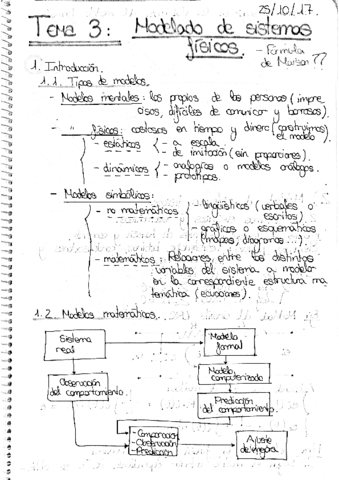 25/10/17.
Tema 3: Modelado de sistemas
físicos.
- Fórmula
de Mason??
1. Introducción.
1.1. Tipos de modelos.
- Modelos mentales: los propios de las personas (impre
cisos, difíciles de comunicar y borrosos).
- " físicos: costosos en tiempo y dinero (construimos
el modelo)
- estáticos - a escala
- de imitación (sin proporciones).
- dinámicos - analógicos o modelos análogos.
- prototipos.
- Modelos simbólicos:
- no matemáticos - lingüísticos (verbales o
escritos)
- gráficos o esquemáticos
(mapas, diagramas...).
- matemáticos: Relaciones entre las distintas
variables del sistema a modelar
en la correspondiente estructura ma
temática (ecuaciones).
1.2 Modelos matemáticos.
Sistema
real
Modelo
formal
Modelo
computerizado
Observación
del comportamiento
Predicción
del comportamiento
- Comparación
- Observación
- Predicción
Ajuste